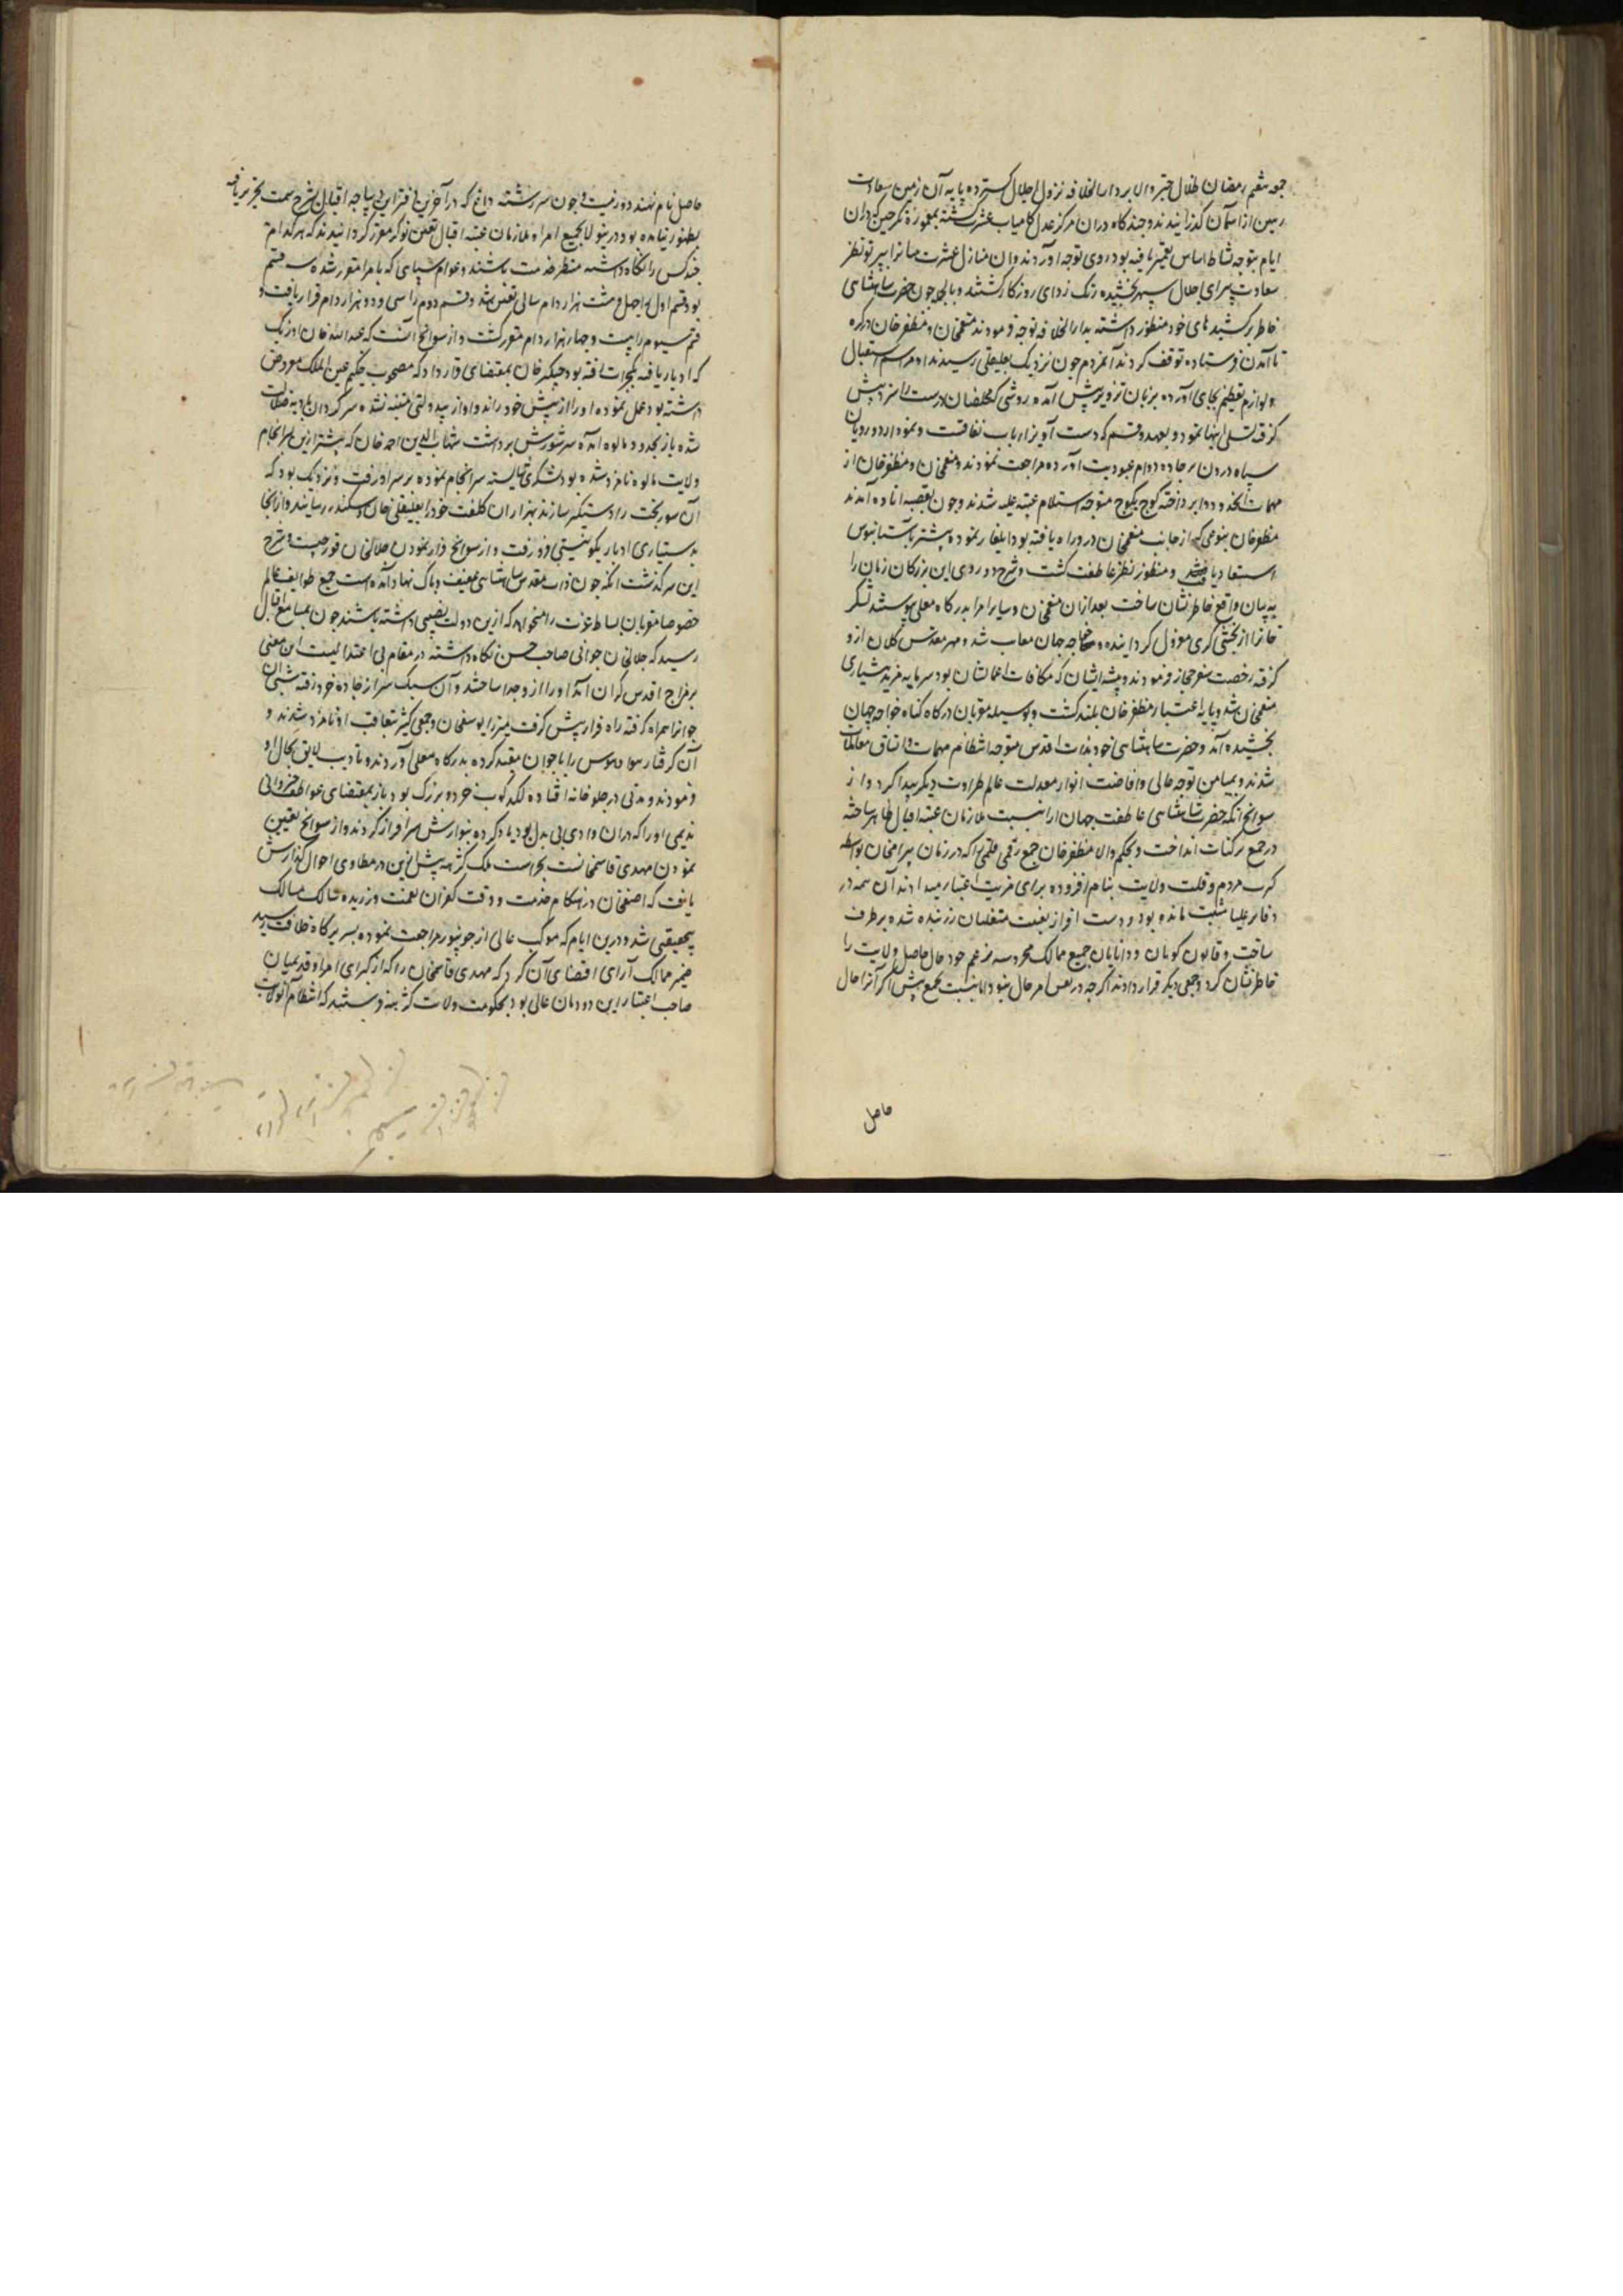 جمعه هفتم رمضان ظلال چتر والا بر دارالخلافه نزول اجلال گسترده پایه آن زمین سعادت
رهین از آسمان گذرانیدند و چند گاه در آن مرکز عدل کامیاب عشرت گشته بمعموره نگرچین که در آن
ایام بتوجه نشاط اساس تعمیر یافته بود روی توجه آوردند و آن منازل عشرت را بپرتو نظر
سعادت پیرای جلال سپهر بخشیده زنگ زدای روزگار گشتند و بالجمله چون حضرت شاهنشاهی
خاطر برکشیدهای خود منظور داشته بدارالخلافه توجه فرمودند منعم خان و مظفر خان در کره
تا آمدن فرستاده توقف کردند آنمردم چون نزدیک بعلیقلی رسیدند او مراسم استقبال
و لوازم تعظیم بجای آورده بزبان تزویر پیش آمده روشی که مخلصان درست را سزد پیش
گرفته تسلی اینها نمود و بعهد و قسم که دست آویز ارباب نفاقست و نمودار دورویان
سیاه درون بر جاده دوام عبودیت آورده مراجعت نمودند و منعم خان و مظفر خان از
مهمات آنحدود وا پرداخته کوچ بکوچ متوجه استلام عتبه علیه شدند و چون بقصبه اتاوه آمدند
مظفر خان بنوعی که از جانب منعم خان در دراه یافته بود ایلغار نموده پیشتر بآستانبوس
استسعاد یافت و منظور نظر عاطفت گشت و شرح دو روی این بزرگان زبان را
به بیان واقع خاطرنشان ساخت بعد از آن منعم خان و سایر امرا بدرگاه معلی پیوستند لشکر
خانرا از بخشی گری معزول گردانیده و خواجه جهان معاتب شد و مهر مقدس کلان از و
گرفته رخصت سفر حجاز فرمودند و پیشه ایشان که مکافات اعمالشان بود سرمایه مزید هشیاری
منعم خان شد و پایه اعتبار مظفر خان بلند گشت و بوسیله مقربان درگاه گناه خواجه جهان
بخشیده آمد و حضرت شاهنشاهی خود بذات اقدس متوجه انتظام مهمات و اتساق معاملات
شدند و بمیامن توجه عالی و افاضت انوار معدلت عالم طراوت دیگر پیدا کرد و از
سوانح آنکه حضرت شاهنشاهی عاطفت جهان آرا نسبت ملازمان عتبه اقبال ظاهر ساخته
در جمع پرگنات انداخت و بحکم والا مظفر خان جمع رقمی قلمی را که در زمان بیرامخان بواسطه
کثرت مردم و قلت ولایت بنام افزوده برای مزیت اعتبار میدادند آن همه در
دفاتر علیا مثبت مانده بود و دست افزار بغیت متغلبان زر بنده شده برطرف
ساخت و قانون گویان و دانایان جمیع ممالک محروسه بزعم خود حال حاصل ولایت را
خاطرنشان کرد و جمعی دیگر قرار دادند اگرچه در نفس امر حال نبود اما بنسبت جمع پیش اگر آنرا حال
حاصل
حاصل نام نهند دور نیست و چون سررشته داغ که در آخرین دفتر این دیباچه اقبال شرح سمت تحریر یافته
بظهور نیامده بود درینولا بجمیع امرا و ملازمان عتبه اقبال تعین نوکر مقرر گردانیدند که هر کدام
چند کس را نگاه داشته منتظر خدمت باشند و عوام سپاهی که بامرا مقرر شده سه قسم
بود قسم اول را چهل و هشت هزار دام سالی تعین شد و قسم دوم را سی و دو هزار دام قرار یافت و
قسم سیوم را بیست و چهار هزار دام مقرر گشت و از سوانح آنست که عبدالله خان اوزبک
که ادبار یافته بگجرات رفته بود چنگیز خان بمقتضای قرارداد که مصحوب حکیم عین الملک معروض
داشته بود عمل نموده او را از پیش خود راند و او از بیدولتی متنبه نشده سرگردان بادیه ضلالت
شده باز بحدود مالوه آمده سر شورش برداشت شهاب الدین احمد خان که پیشتر ازین بسرانجام
ولایت مالوه نامزد شده بود لشکری شایسته سرانجام نموده بر سر او رفت و نزدیک بود که
آن شوربخت را دستگیر سازند بهزاران کلفت خود را بعلیقلی خان و سکندر رسانیدند و از آنجا
بدستیاری ادبار بگو نیستی فرو رفت و از سوانح فرار نمودن جلالخان قورچیست و شرح
این سرگذشت آنکه چون ذات مقدس شاهنشاهی عفیف و پاک نهاد آمده است جمیع طوایف عالم
خصوصا مقربان بساط عزت را میخواهد که ازین دولت نصیبی داشته باشند چون بمسامع اقبال
رسید که جلالخان جوانی صاحب حسن نگاه داشته در مقام بی اعتدالیست این معنی
بر مزاج اقدس گران آمد او را از و جدا ساختند و آن سبک سر از جاده خرد رفته شبی آن
جوانرا همراه گرفته راه فرار پیش گرفت میرزا یوسفخان و جمعی کثیر بتعاقب او نامزد شدند و
آن گرفتار هوا و هوس را با جوان مقید کرده بدرگاه معلی آوردند و تادیب لایق بحال او
فرمودند و مدتی در جلوخانه افتاده لگدکوب خرد و بزرگ بود باز بمقتضای عواطف خسروانی
ندیمی او را که در آن وادی بی بدل بود یاد کرده بنوازش سرافراز کردند و از سوانح تعیین
نمودن مهدی قاسمخانست بحراست ملک گدهه پیش ازین در مطاوی احوال گذارش
یافت که آصفخان در هنگام خدمت و وقت کفران نعمت ورزیده سالک مسالک
بیحقیقتی شد و درین ایام که موکب عالی از جونپور مراجعت نموده بسریرگاه خلافت رسید
ضمیر ممالک آرای اقتضای آن کرد که مهدی قاسمخان را که از کبرای امرا و قدیمیان
صاحب اعتبار این دودمان عالی بود بحکومت ولایت گدهه بفرستند که انتظام آنولایت